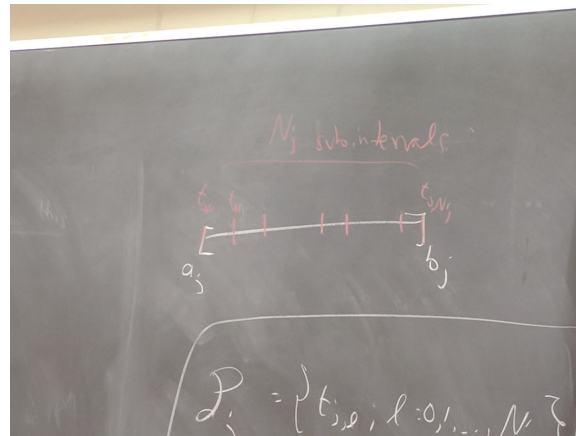 N_j subintervals
t_{j,0} t_{j,1} t_{j,N_j}
[ ]
a_j b_j
P_j = {t_{j,l}; l=0,1,...,N_j}